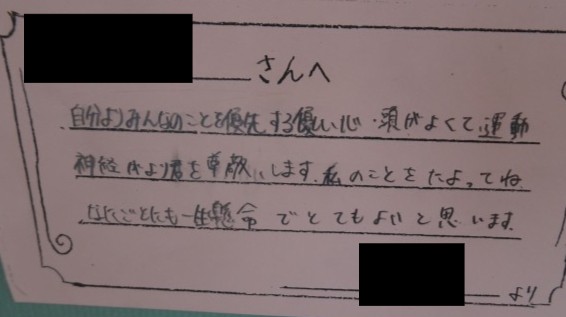 さんへ
自分よりみんなのことを優先する優しい心・頭がよくて、運動
神経がよい君を尊敬にします。私のことをたよってね
なにごとにも一生懸命でとてもよいと思います。
より